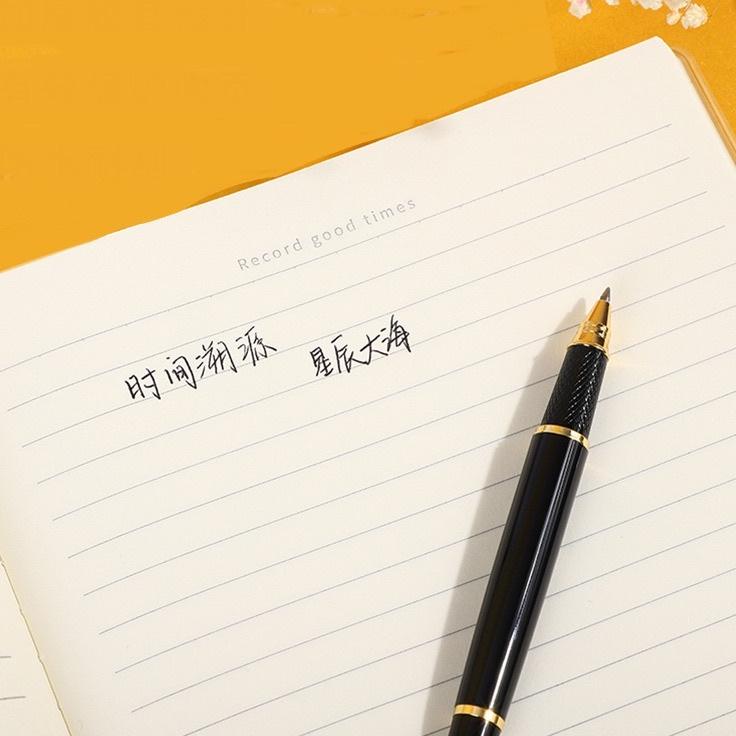 Record good times
时间溯源 星辰大海